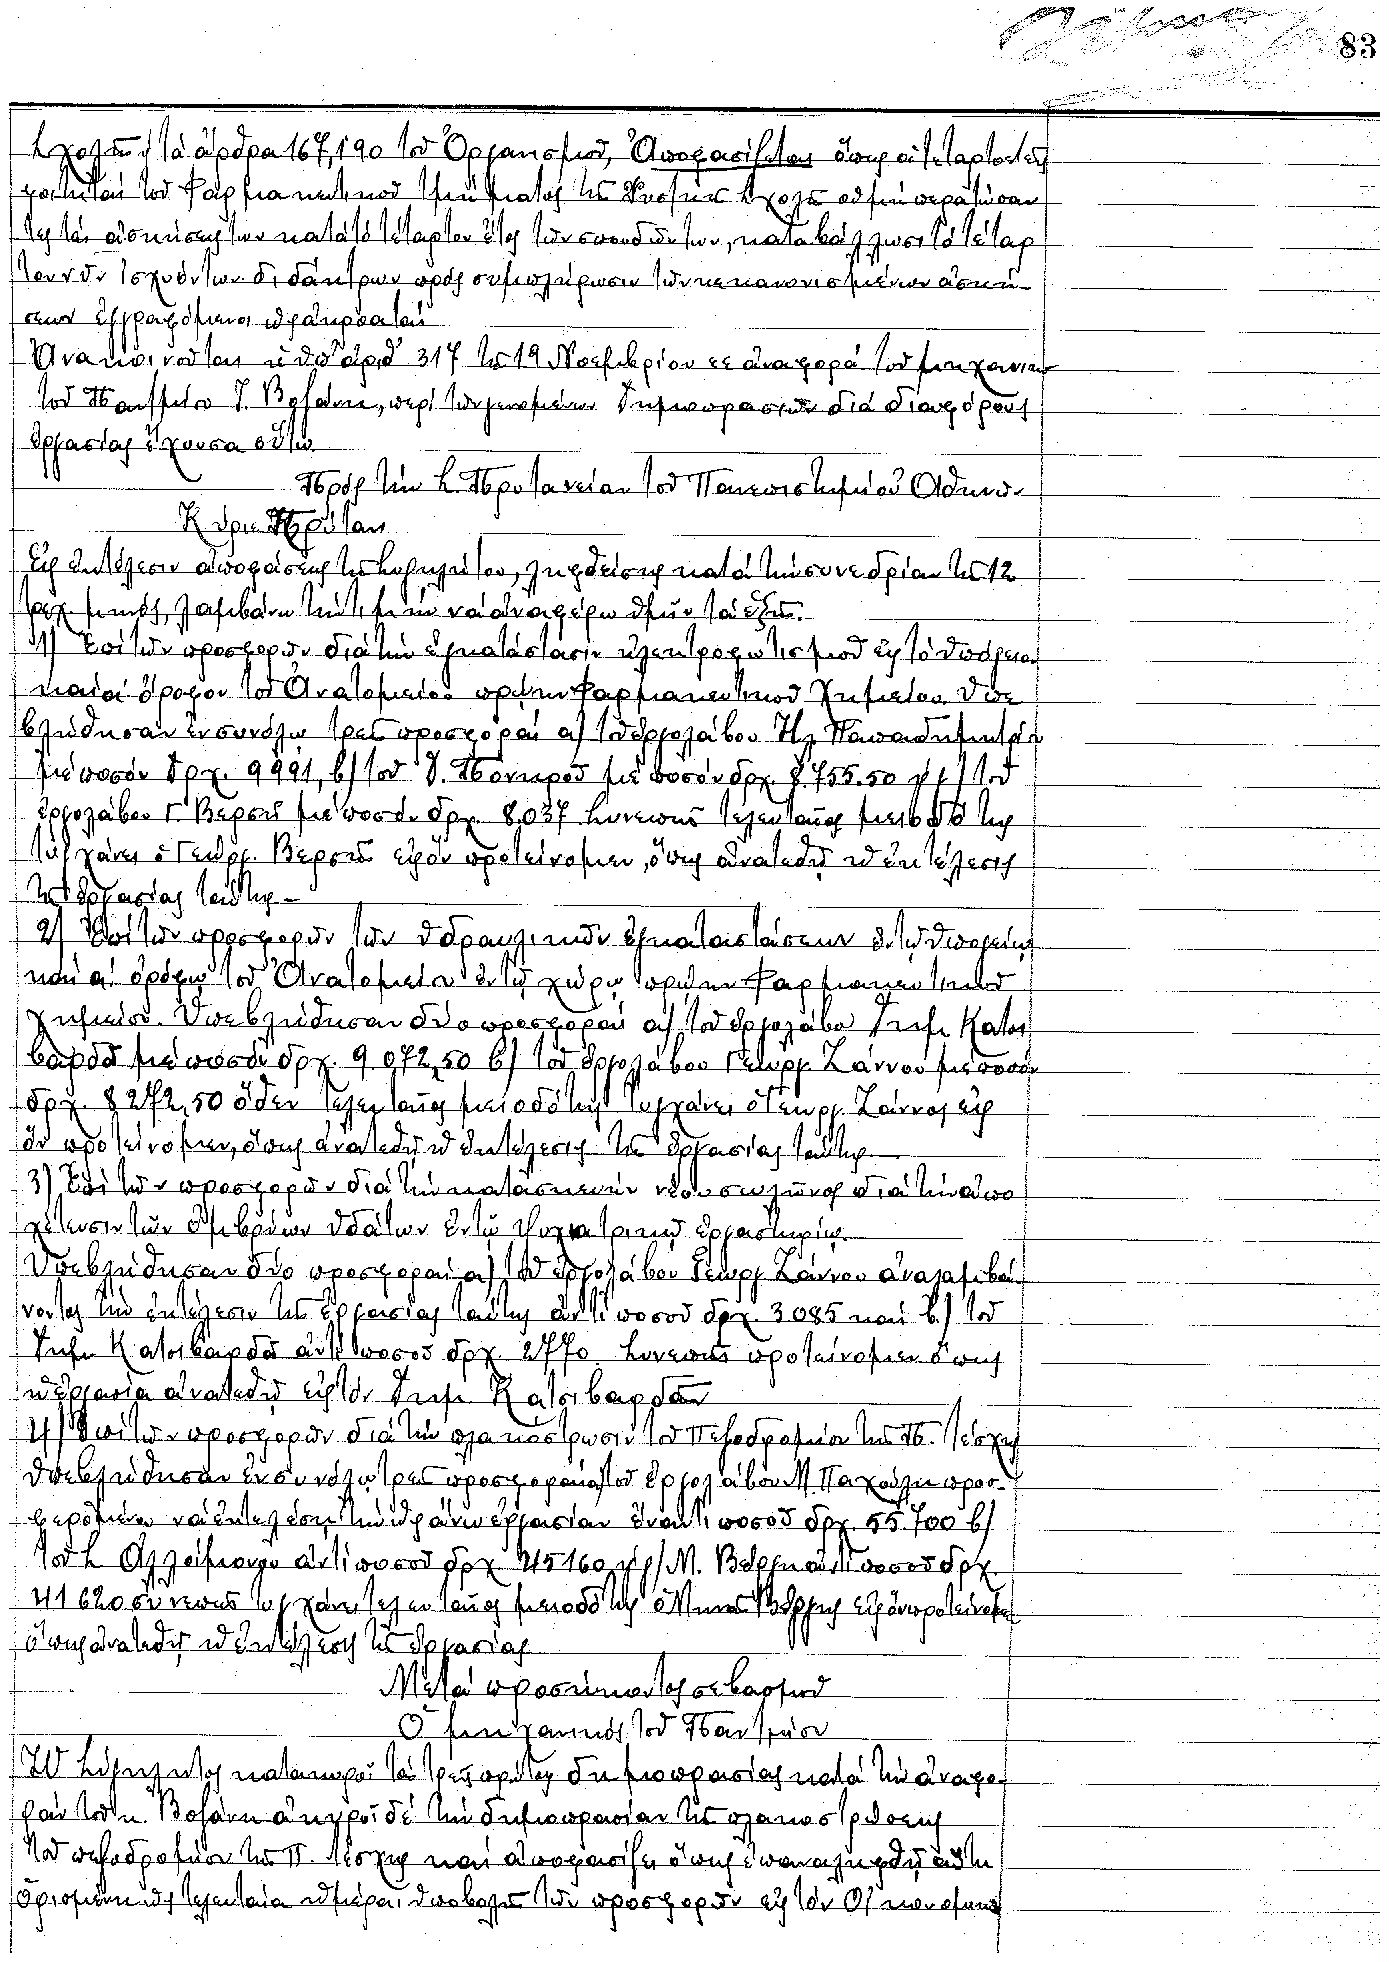 83
Σχολῆς καὶ τὰ ἄρθρα 167, 190 τοῦ Ὀργανισμοῦ, Ἀποφασίζεται ὅπως οἱ τεταρτοετεῖς
φοιτηταὶ τοῦ Φαρμακευτικοῦ τμήματος τῆς Φυσ/κῆς Σχολῆς οἱ μὴ περατώσαν
τες τὰς ἀσκήσεις των κατὰ τὸ τέταρτον ἔτος τῶν σπουδῶν των, καταβάλλωσι τὸ τέταρ
τον τῶν ἰσχυόντων διδάκτρων πρὸς συμπλήρωσιν τῶν κεκανονισμένων ἀσκή-
σεων ἐγγραφόμενοι ὡς ἀκροαταί
Ἀνακοινοῦται ἡ ὑπ' ἀριθ 317 τῆς 19 Νοεμβρίου ἐ.ἔ. ἀναφορὰ τοῦ μηχανικοῦ
τοῦ Παν/μίου Ι. Βοζάνη, περὶ τῶν γενομένων δημοπρασιῶν διὰ διαφόρους
ἐργασίας ἔχουσα οὕτω
Πρὸς τὴν Σ. Πρυτανείαν τοῦ Πανεπιστημίου Ἀθηνῶν
Κύριε Πρύτανι
Εἰς ἐκτέλεσιν ἀποφάσεως τῆς Συγκλήτου, ληφθείσης κατὰ τὴν συνεδρίαν τῆς 12
τρεχ. μηνός, λαμβάνω τὴν τιμὴν νὰ ἀναφέρω ὑμῖν τὰ ἑξῆς.
1) Ἐπὶ τῶν προσφορῶν διὰ τὴν ἐγκατάστασιν ἠλεκτροφωτισμοῦ εἰς τὸ ὑπόγειον
καὶ α' ὄροφον τοῦ Ἀνατομείου πρώην Φαρμακευτικοῦ Χημείου ὑπε
βλήθησαν ἐν συνόλῳ τρεῖς προσφοραὶ α) τοῦ ἐργολάβου Ἠλ Παπαδημητρίου
μὲ ποσὸν δρχ. 9991, β) τοῦ μὲ ποσὸν δρχ. 8.755.50 καὶ γ) τοῦ
ἐργολάβου Γ. Βερσῆ μὲ ποσὸν δρχ. 8.037 Συνεπῶς τελευταῖος μειοδότης
τυγχάνει ὁ Γεώργ. Βερσῆς εἰς ὃν προτείνομεν, ὅπως ἀνατεθῇ ἡ ἐκτέλεσις
τῆς ἐργασίας ταύτης –
2) Ἐπὶ τῶν προσφορῶν τῶν ὑδραυλικῶν ἐγκαταστάσεων ἐν τῷ ὑπογείῳ
καὶ α' ὀρόφῳ τοῦ Ἀνατομείου ἐν τῷ χώρῳ πρώην Φαρμακευτικοῦ
χημείου. Ὑπεβλήθησαν δύο προσφοραὶ α) τοῦ ἐργολάβου Δημ. Κατσι
βαρδᾶ μὲ ποσὸν δρχ. 9.072,50 β) τοῦ ἐργολάβου Γεωργ. Ζάννου μὲ ποσὸν
δρχ. 8272,50 ὅθεν τελευταῖος μειοδότης τυγχάνει ὁ Γεωργ. Ζάννος εἰς
ὃν προτείνομεν, ὅπως ἀνατεθῇ ἡ ἐκτέλεσις τῆς ἐργασίας ταύτης.
3) Ἐπὶ τῶν προσφορῶν διὰ τὴν κατασκευὴν νέου σωλῆνος διὰ τὴν ἀπο
χέτευσιν τῶν ὀμβρίων ὑδάτων ἐν τῷ ἐργαστηρίῳ.
Ὑπεβλήθησαν δύο προσφοραὶ α) τοῦ ἐργολάβου Γεωργ. Ζάννου ἀναλαμβά
νοντος τὴν ἐκτέλεσιν τῆς ἐργασίας ταύτης ἀντὶ ποσοῦ δρχ. 3085 καὶ β) τοῦ
Δημ. Κατσιβαρδᾶ ἀντὶ ποσοῦ δρχ. 2770. Συνεπῶς προτείνομεν ὅπως
ἡ ἐργασία ἀνατεθῇ εἰς τὸν Δημ. Κατσιβαρδᾶν
4) Ἐπὶ τῶν προσφορῶν διὰ τὴν πλακόστρωσιν τοῦ Πεζοδρομίου τῆς Π. Λέσχης
ὑπεβλήθησαν ἐν συνόλῳ τρεῖς προσφοραὶ α) τοῦ ἐργολάβου Μ Παχούλη προσ-
φερομένου νὰ ἐκτελέσῃ τὴν ὡς ἄνω ἐργασίαν ἔναντι ποσοῦ δρχ. 55.700 β)
τοῦ Σ ἀντὶ ποσοῦ δρχ 45160 καὶ γ) Μ. ἀντὶ ποσοῦ δρχ.
41620 συνεπῶς τυγχάνει τελευταῖος μειοδότης ὁ εἰς ὃν προτείνομεν
ὅπως ἀνατεθῇ ἡ ἐκτέλεσις τῆς ἐργασίας
Μετὰ προσήκοντος σεβασμοῦ
Ὁ μηχανικὸς τοῦ Παν/μίου
Ἡ Σύγκλητος κατακυροῖ τὰς τρεῖς πρώτας δημοπρασίας κατὰ τὴν ἀναφο
ρὰν τοῦ κ. Βοζάνη ἀκυροῖ δὲ τὴν δημοπρασίαν τῆς πλακοστρώσεως
τοῦ πεζοδρομίου τῆς Π. Λέσχης καὶ ἀποφασίζει ὅπως ἐπαναληφθῇ αὕτη
ὁρισμένης ὡς τελευταία ἡμέρα ὑποβολῆς τῶν προσφορῶν εἰς τὸν Οἰκονομικὸν